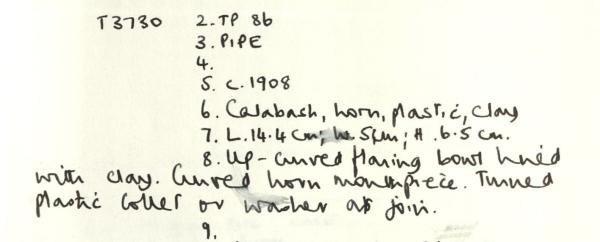 T3730 2. TP 86
3. PIPE
4.
5. c. 1908
6. Calabash, horn, plastic, clay
7. L. 14.4 cm; W. 5cm; H. 6.5 cm.
8. Up-curved flaring bowl lined
with clay. Curved horn mouthpiece. Turned
plastic collet or washer at join.
9.